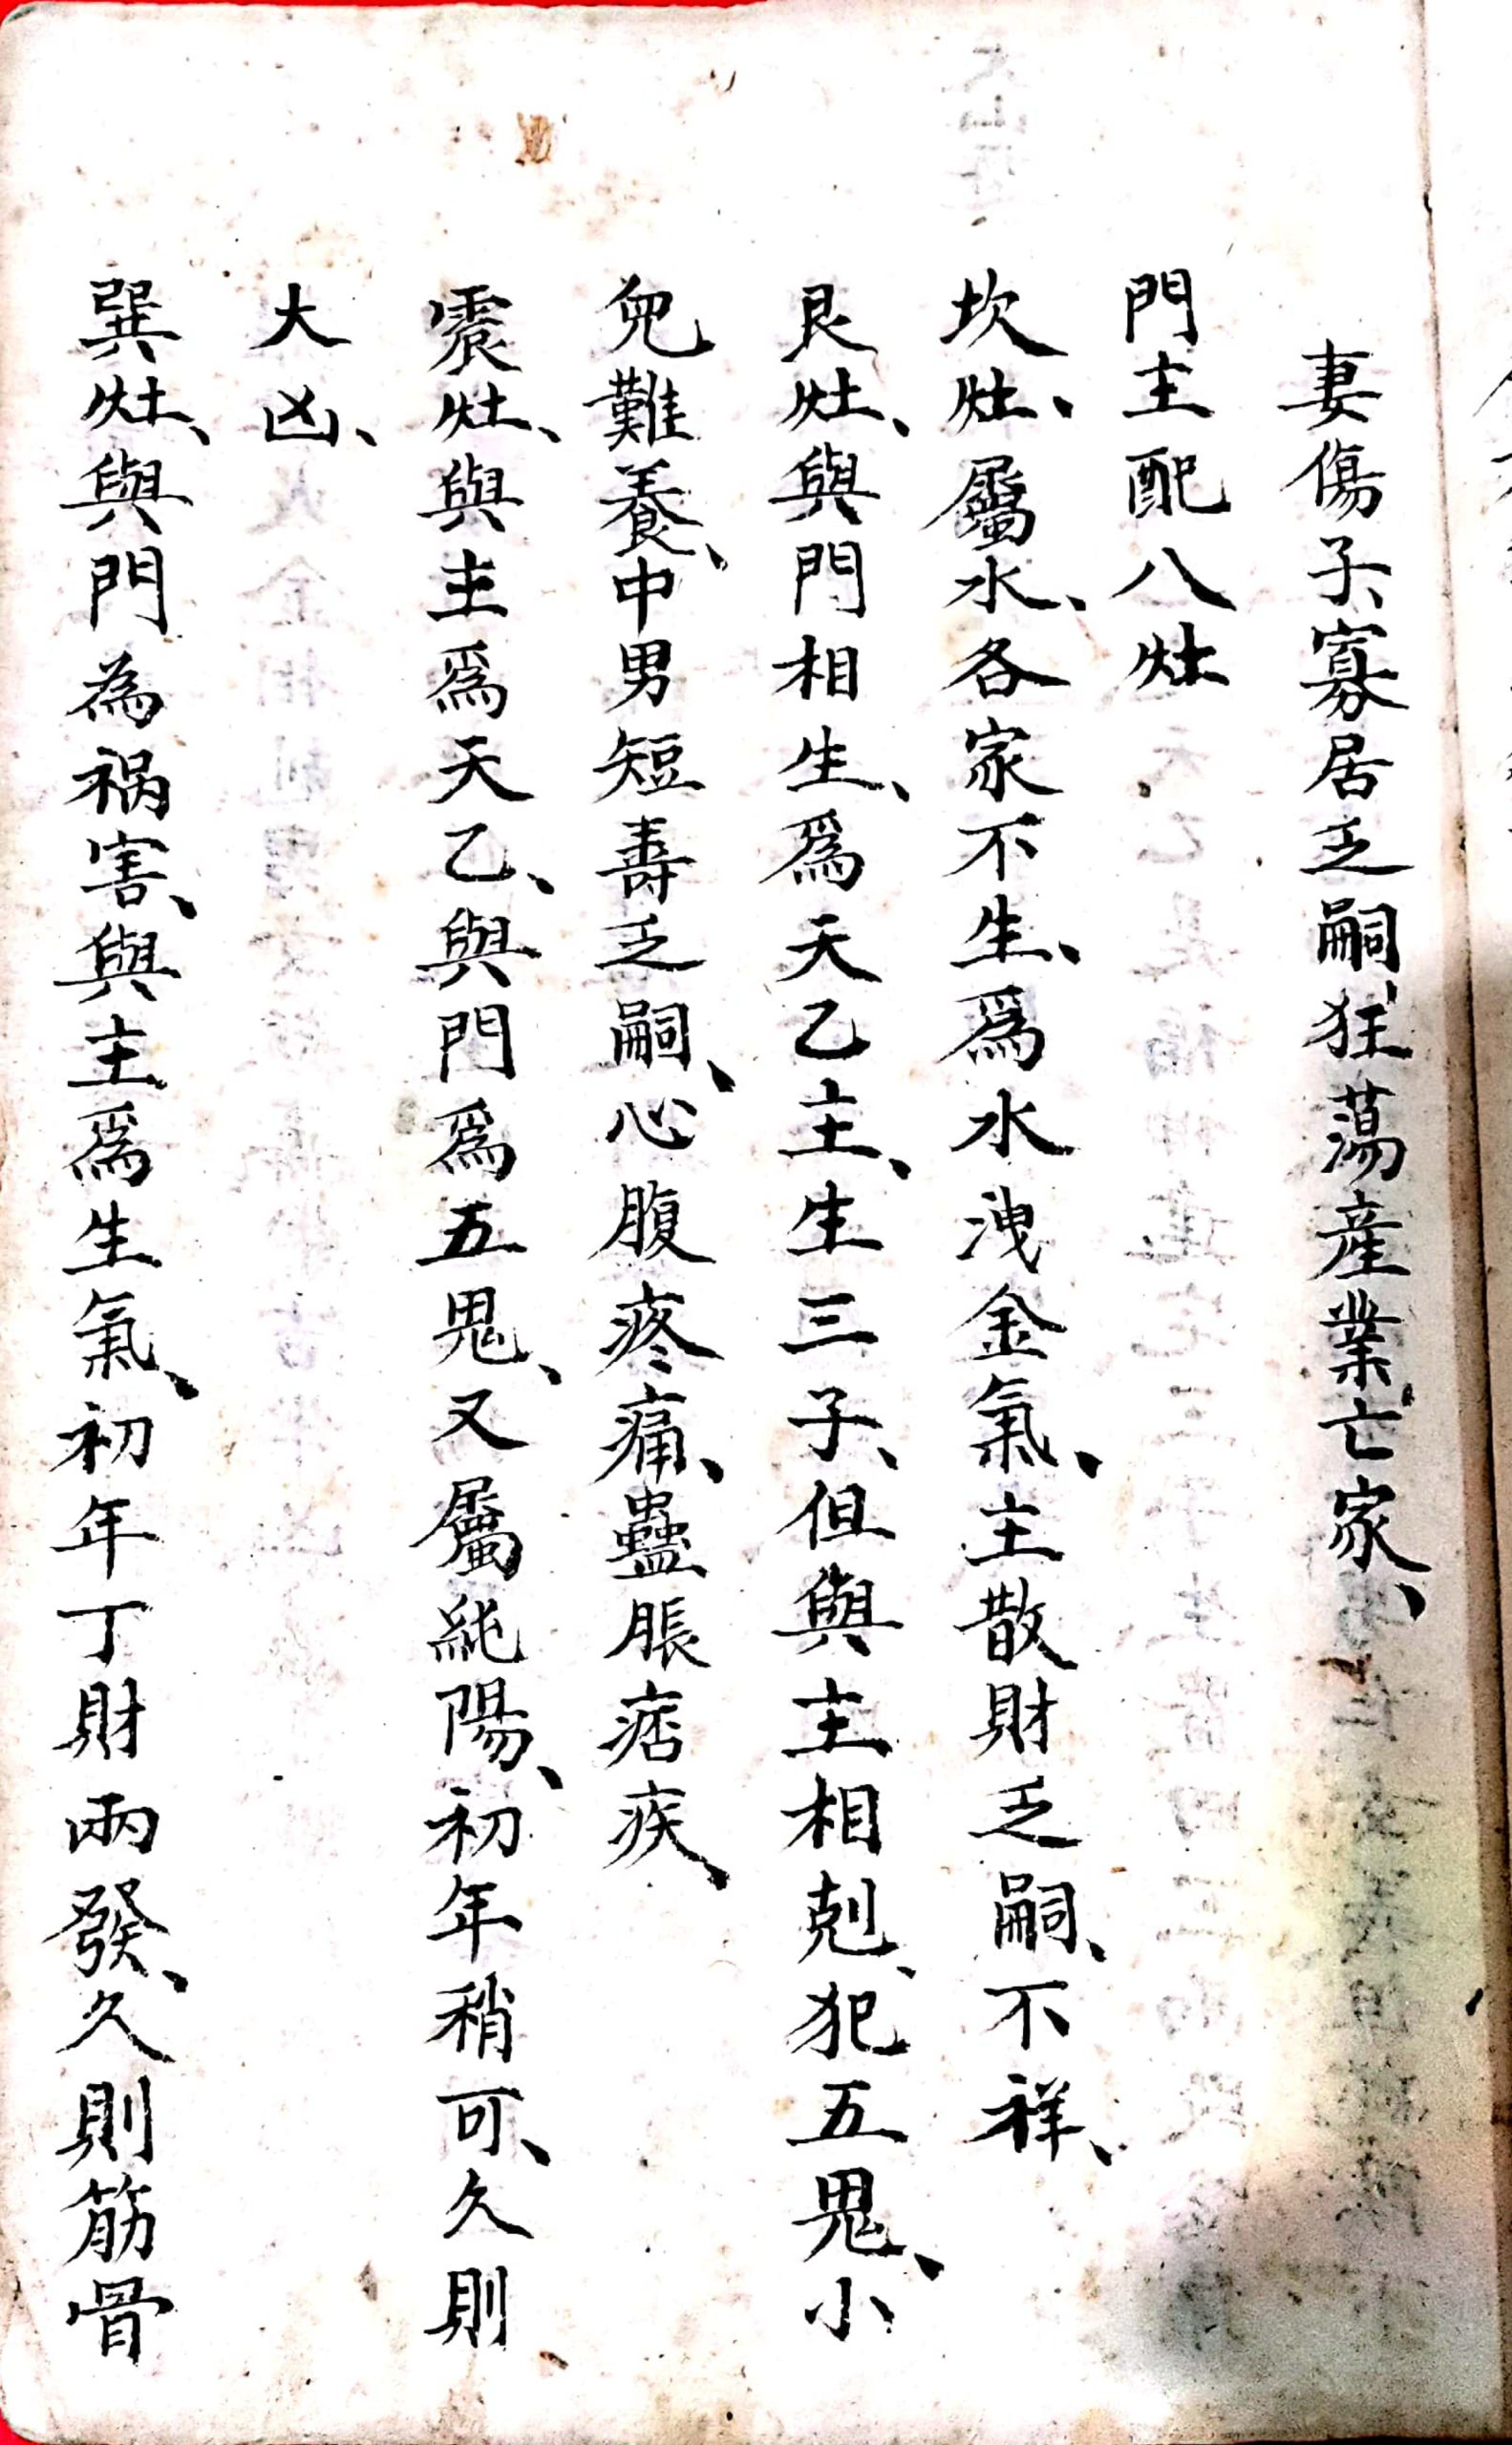 妻傷子、寡居乏嗣、狂蕩産業、亡家、
門主配八灶
坎灶、屬水、各家不生、爲水洩金氣、主散財乏嗣、不祥、
艮灶、與門相生、爲天乙主、生三子、但與主相剋、犯五鬼、小
兒難養、中男短壽乏嗣、心腹疼痛、蠱脹痞疾、
震灶、與主爲天乙、與門爲五鬼、又屬純陽、初年稍可、久則
大凶、
巽灶、與門為禍害、與主爲生氣、初年丁財兩發、久則筋骨